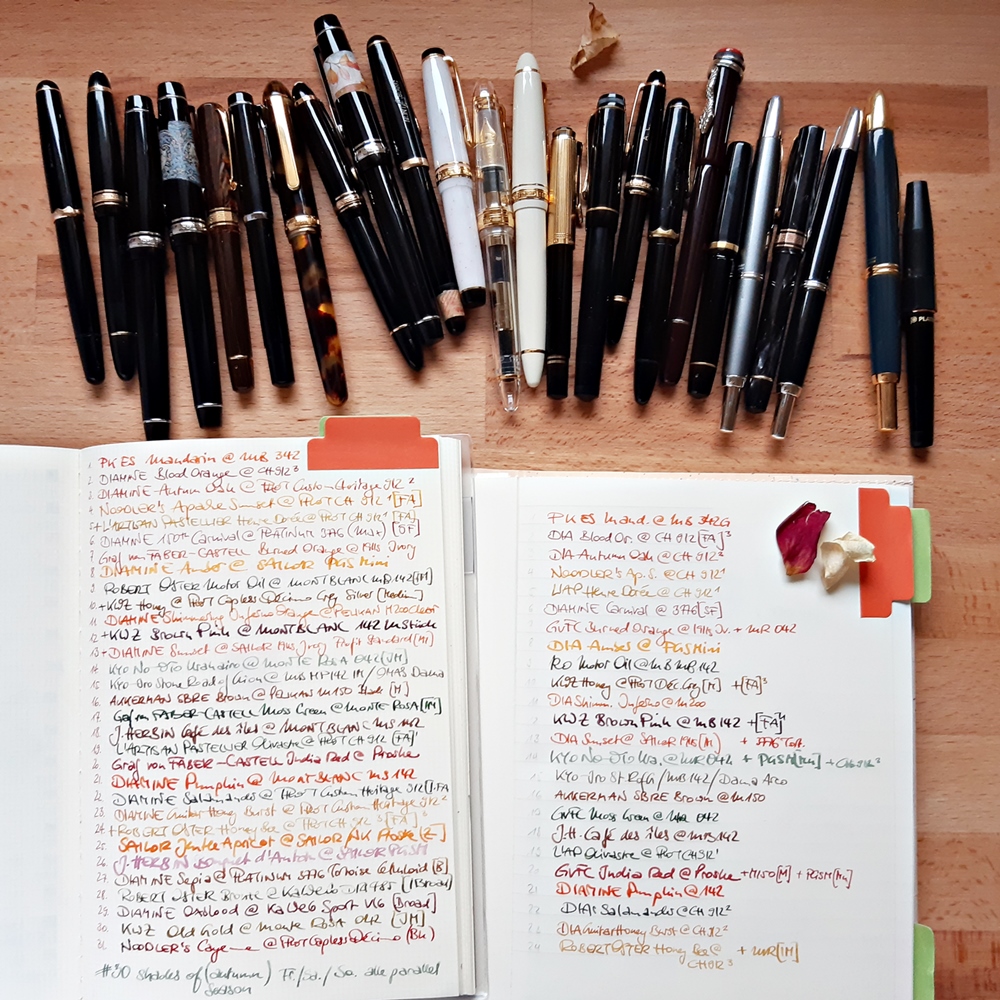 PLAT
1 P'K ES Mandarin @ MB 342
2 DIAMINE Blood Orange @ CH 912³
3 DIAMINE Autumn Oak @ PILOT Custom Heritage 912²
4 NOODLER'S Apache Sunset @ PILOT CH 912¹ [FA]
5 + L'ARTISAN PASTELLIER Dorée @ PILOT CH 912¹ [FA]
6 DIAMINE 150th Carnival @ PLATINUM 3776 [SF]
7 Graf von FABER-CASTELL Burned Orange @ Ivory
8 DIAMINE Amber @ SAILOR PGS Mini
9 ROBERT OSTER Motor Oil @ MONTBLANC MB 142 [M]
10 + KWZ Honey @ PILOT Capless Décimo Grey Silver [Medium]
11 DIAMINE Shimmering Inferno Orange @ PELIKAN M200 Clear
12 + KWZ Brown Pink @ MONTBLANC 142 M'stück
13 + DIAMINE Sunset @ SAILOR Ivory Profit Standard [M]
14 KYO NO OTO @ MONTE ROSA 042 [M]
15 KYO-Iro Stone Road of Gion @ MB 142 / OMAS Dama
16 AKKERMAN SBRE Brown @ PELIKAN M150 [M]
17 Graf von FABER-CASTELL Moss Green @ MONTE ROSA [M]
18 J. HERBIN Café des îles @ MONTBLANC MS 142
19 L'ARTISAN PASTELLIER Olivastre @ PILOT CH 912 [FA]¹
20 Graf von FABER-CASTELL India Red @ Proske
21 DIAMINE Pumpkin @ MONTBLANC MS 142
22 DIAMINE Salamander @ PILOT Custom Heritage 912 [FA
23 DIAMINE Guitar Honey Burst @ PILOT Custom Heritage 912²
24 + ROBERT OSTER Honey Bee @ PILOT CH 912³ [FA]
25 SAILOR Jentle Apricot @ SAILOR Proske
26 J. HERBIN Bouquet d'Antan @ SAILOR PGSM
27 DIAMINE Sepia @ PLATINUM 3776 Tortoise Celluloid [B]
28 ROBERT OSTER Bronze @ KaWeCo [Broad]
29 DIAMINE Oxblood @ KaWeCo Sport V16 [Broad]
30 KWZ Old Gold @ Monte ROSA 042 [M]
31 NOODLER'S Cayenne @ PILOT Capless Décimo
#30 shades of (autumn) Fr./Sa./So. alle parallel
Season
1 P'K ES Mand. @ MB 342G
2 DIA Blood Or. @ CH 912 [FA]³
3 DIA Autumn Oak @ CH 912²
4 NOODLER's Ap. S. @ CH 912¹
5 L'AP Dorée @ CH 912¹
6 DIAMINE Carnival @ 3776 [SF]
7 GvFC Burned Orange @ + MR 042
8 DIA Amber @ PGS Mini
9 RO Motor Oil @ MB 142
10 KWZ Honey @ PILOT Déc. Grey [M] + [FA]³
11 DIA Shimm. Inferno @ M200
12 KWZ Brown Pink @ MB 142 + [FA]¹
13 DIA Sunset @ SAILOR [M] + 3776 Tort.
14 KYO NO OTO @ MR 042 + PGSM
15 KYO-Iro St. R. of G. / MB 142 / Dama Arco
16 AKKERMAN SBRE Brown @ M150
17 GvFC Moss Green @ MR 042
18 J. H. Café des îles @ MB 142
19 L'AP Olivastre @ PILOT CH 912¹
20 GVFC India Red @ Proske + M150 [M] + PGSM
21 DIAMINE Pumpkin @ 142
22 DIA: Salamander @ CH 912²
23 DIA Guitar Honey Burst @ CH 912²
24 ROBERT OSTER Honey Bee @ + MR [M]
CH 912³